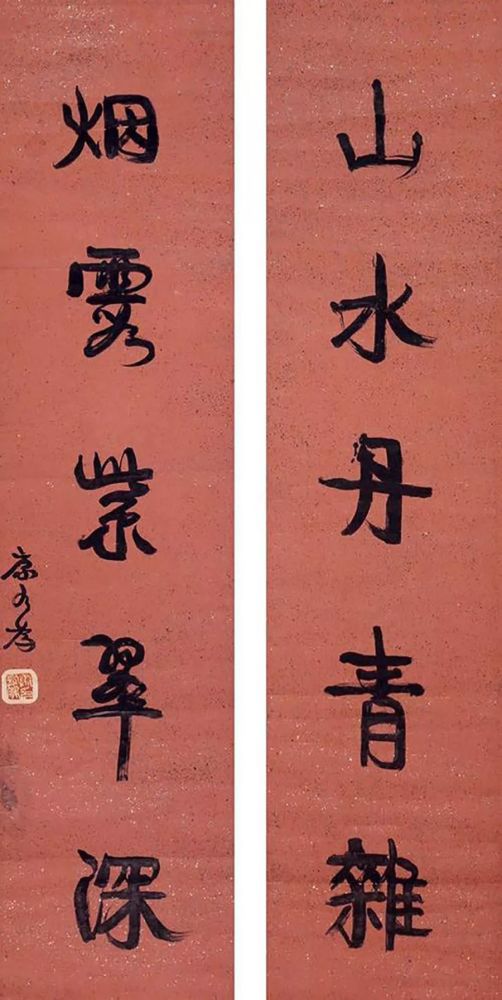 山水丹青雜
烟霞紫翠深
康有為